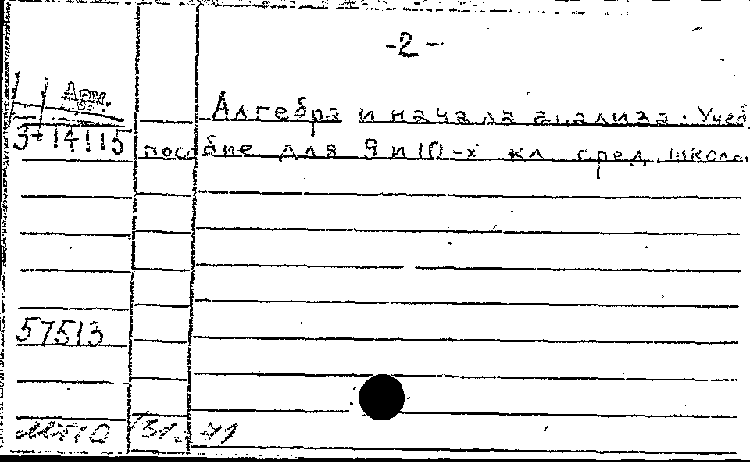 -2-
Арм.
3+14115
Алгебра и начала анализа. Учеб.
пособие для 9 и 10-х кл. сред. школы
57513